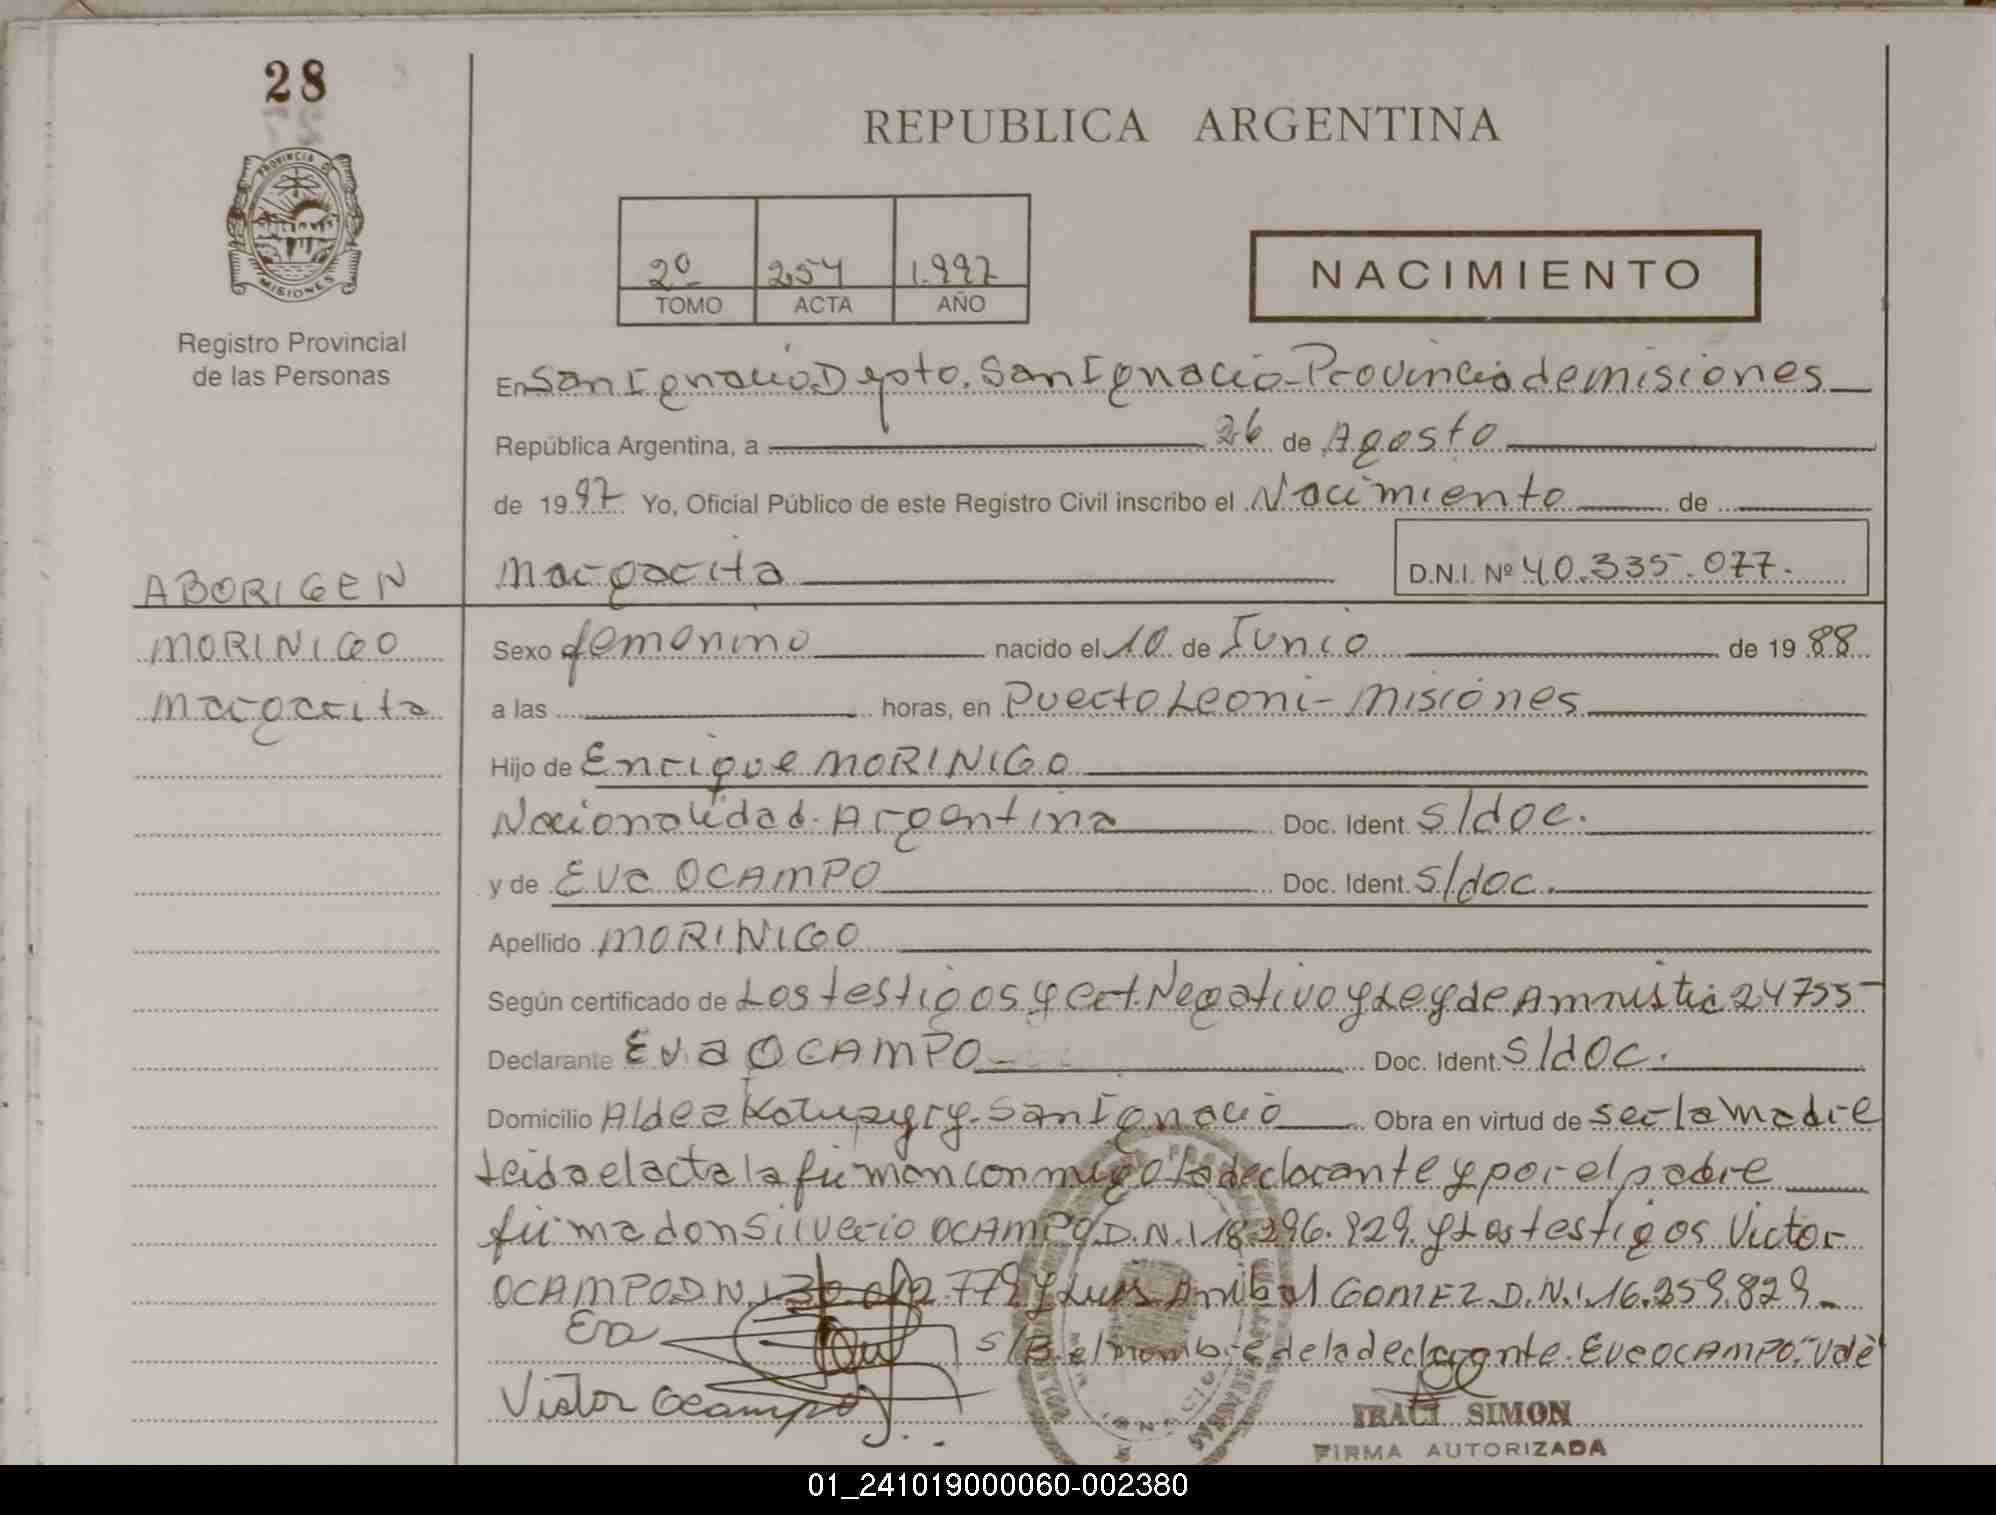 28
REPUBLICA ARGENTINA
PROVINCIA DE
MISIONES
Registro Provincial
de las Personas
2º 254 1.997
TOMO ACTA AÑO
NACIMIENTO
En San Ignacio, Depto. San Ignacio - Provincia de misiones
República Argentina, a 26 de Agosto
de 1997 Yo, Oficial Público de este Registro Civil inscribo el Nacimiento de
Margarita D.N.I. Nº 40.335.077.
ABORIGEN
MORINIGO
Margarita
Sexo femenino nacido el 10 de Junio de 1988
a las horas, en Puerto Leoni - Misiones
Hijo de Enrique MORINIGO
Nacionalidad Argentina Doc. Ident. s/doc.
y de Eva OCAMPO Doc. Ident. s/doc.
Apellido MORINIGO
Según certificado de Los testigos y Cert. Negativo y Ley de Amnistia 24755
Declarante Eva OCAMPO Doc. Ident. s/doc.
Domicilio Aldea Katupyry - San Ignacio Obra en virtud de ser la madre
Leida el acta la firman conmigo la declarante y por el padre
firma don Silverio OCAMPO D.N.I 18.296.929. y Los testigos Victor
OCAMPO D.N.I 779 y Luis Anibal GOMEZ D.N.I. 16.259.829.
s/B. el nombre de la declarante. Eva OCAMPO." Vale
Eva
Victor Ocampo
IRACI SIMON
FIRMA AUTORIZADA
01_241019000060-002380